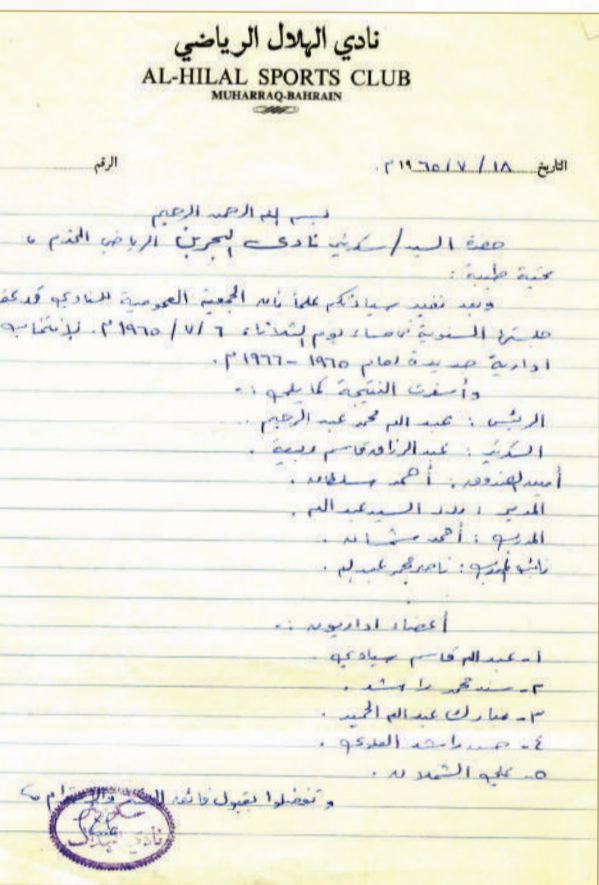 نادي الهلال الرياضي
AL-HILAL SPORTS CLUB
MUHARRAQ-BAHRAIN
التاريخ ١٨ / ٧ / ١٩٦٥ م. الرقم
بسم الله الرحمن الرحيم
حضرة السيد / سكرتير نادي البحرين الرياضي المحترم
تحية طيبة :
وبعد نفيد سيادتكم علماً بأن الجمعية العمومية للنادي قد عقد
جلستها السنوية في مساء يوم الثلاثاء ٦ / ٧ / ١٩٦٥ م. لإنتخاب
ادارية جديدة لعام ١٩٦٥ - ١٩٦٦ م.
وأسفرت النتيجة كما يلي :-
الرئيس : عبد الله محمد عبد الرحيم .
السكرتير : عبد الرزاق قاسم .
أمين الصندوق : أحمد سلطان .
المدير : السيد عبد الله .
المدرب : أحمد .
نائب المدرب : ناصر محمد عبد الله .
أعضاء اداريون :-
١- عبد الله قاسم سيادي .
٢- سند محمد راشد .
٣- مبارك عبد الله الحميد .
٤- راشد .
٥- علي الشملان .
وتفضلوا بقبول فائق والإحترام
نادي الهلال